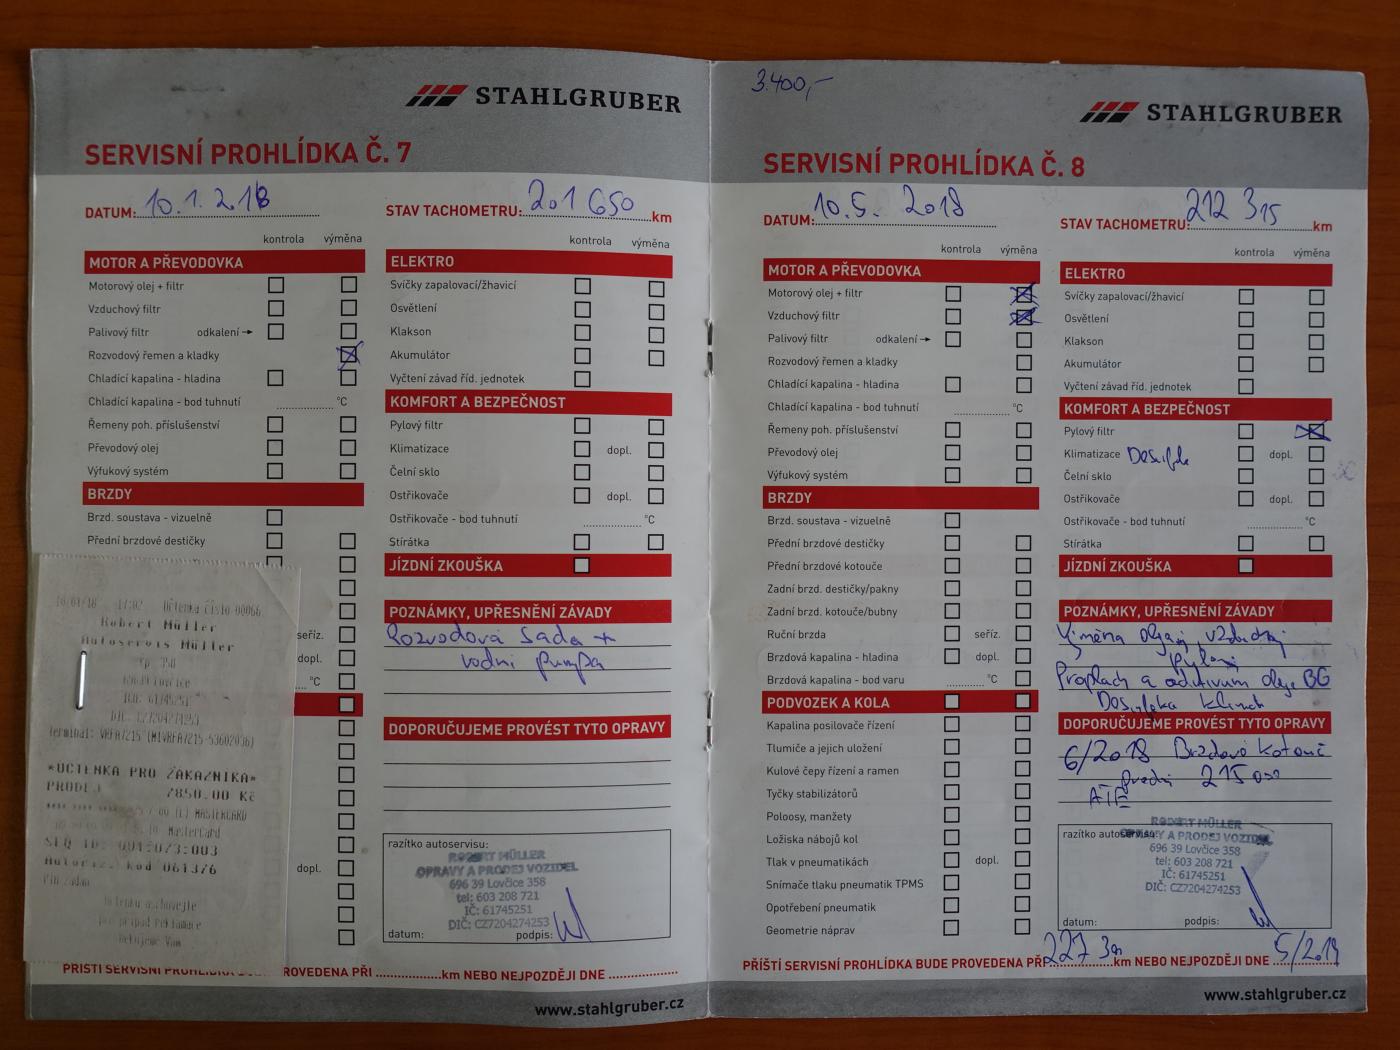 STAHLGRUBER
SERVISNÍ PROHLÍDKA Č. 7
DATUM: 10.1.2018
STAV TACHOMETRU: 201 650 km
kontrola výměna
MOTOR A PŘEVODOVKA
Motorový olej + filtr
Vzduchový filtr
Palivový filtr odkalení →
Rozvodový řemen a kladky
Chladící kapalina - hladina
Chladící kapalina - bod tuhnutí °C
Řemeny poh. příslušenství
Převodový olej
Výfukový systém
BRZDY
Brzd. soustava - vizuelně
Přední brzdové destičky
seříz.
dopl.
°C
dopl.
kontrola výměna
ELEKTRO
Svíčky zapalovací/žhavicí
Osvětlení
Klakson
Akumulátor
Vyčtení závad říd. jednotek
KOMFORT A BEZPEČNOST
Pylový filtr
Klimatizace dopl.
Čelní sklo
Ostřikovače dopl.
Ostřikovače - bod tuhnutí °C
Stírátka
JÍZDNÍ ZKOUŠKA
POZNÁMKY, UPŘESNĚNÍ ZÁVADY
Rozvodová sada +
vodní pumpa
DOPORUČUJEME PROVÉST TYTO OPRAVY
razítko autoservisu:
ROBERT MÜLLER
OPRAVY A PRODEJ VOZIDEL
696 39 Lovčice 358
tel: 603 208 721
IČ: 61745251
DIČ: CZ7204274253
datum: podpis:
17:02 Účtenka číslo 00066
Robert Müller
Autoservis Müller
čp. 358
696 39 Lovčice
IČO: 61745251
DIČ: CZ7204274253
*ÚČTENKA PRO ZÁKAZNÍKA*
PRODEJ 7850.00 Kč
MasterCard
SEQ ID: 001:073:003
Autoriz. kód 061376
PIN zadán
Účtenku uschovejte
pro případ reklamace
Děkujeme Vám
PŘÍŠTÍ SERVISNÍ PROHLÍDKA BUDE PROVEDENA PŘI km NEBO NEJPOZDĚJI DNE
www.stahlgruber.cz
3.400,-
STAHLGRUBER
SERVISNÍ PROHLÍDKA Č. 8
DATUM: 10.5. 2018
STAV TACHOMETRU: 212 315 km
kontrola výměna
MOTOR A PŘEVODOVKA
Motorový olej + filtr
Vzduchový filtr
Palivový filtr odkalení →
Rozvodový řemen a kladky
Chladící kapalina - hladina
Chladící kapalina - bod tuhnutí °C
Řemeny poh. příslušenství
Převodový olej
Výfukový systém
BRZDY
Brzd. soustava - vizuelně
Přední brzdové destičky
Přední brzdové kotouče
Zadní brzd. destičky/pakny
Zadní brzd. kotouče/bubny
Ruční brzda seříz.
Brzdová kapalina - hladina dopl.
Brzdová kapalina - bod varu °C
PODVOZEK A KOLA
Kapalina posilovače řízení
Tlumiče a jejich uložení
Kulové čepy řízení a ramen
Tyčky stabilizátorů
Poloosy, manžety
Ložiska nábojů kol
Tlak v pneumatikách dopl.
Snímače tlaku pneumatik TPMS
Opotřebení pneumatik
Geometrie náprav
kontrola výměna
ELEKTRO
Svíčky zapalovací/žhavicí
Osvětlení
Klakson
Akumulátor
Vyčtení závad říd. jednotek
KOMFORT A BEZPEČNOST
Pylový filtr
Klimatizace dopl.
Čelní sklo
Ostřikovače dopl.
Ostřikovače - bod tuhnutí °C
Stírátka
JÍZDNÍ ZKOUŠKA
POZNÁMKY, UPŘESNĚNÍ ZÁVADY
Výměna oleje, vzduchový
pylový
Proplach a aditivum oleje BG
DOPORUČUJEME PROVÉST TYTO OPRAVY
6/2018 Brzdové kotouče
přední 215 000
ATE
razítko autoservisu:
ROBERT MÜLLER
OPRAVY A PRODEJ VOZIDEL
696 39 Lovčice 358
tel: 603 208 721
IČ: 61745251
DIČ: CZ7204274253
datum: podpis:
PŘÍŠTÍ SERVISNÍ PROHLÍDKA BUDE PROVEDENA PŘI km NEBO NEJPOZDĚJI DNE 5/2019
www.stahlgruber.cz